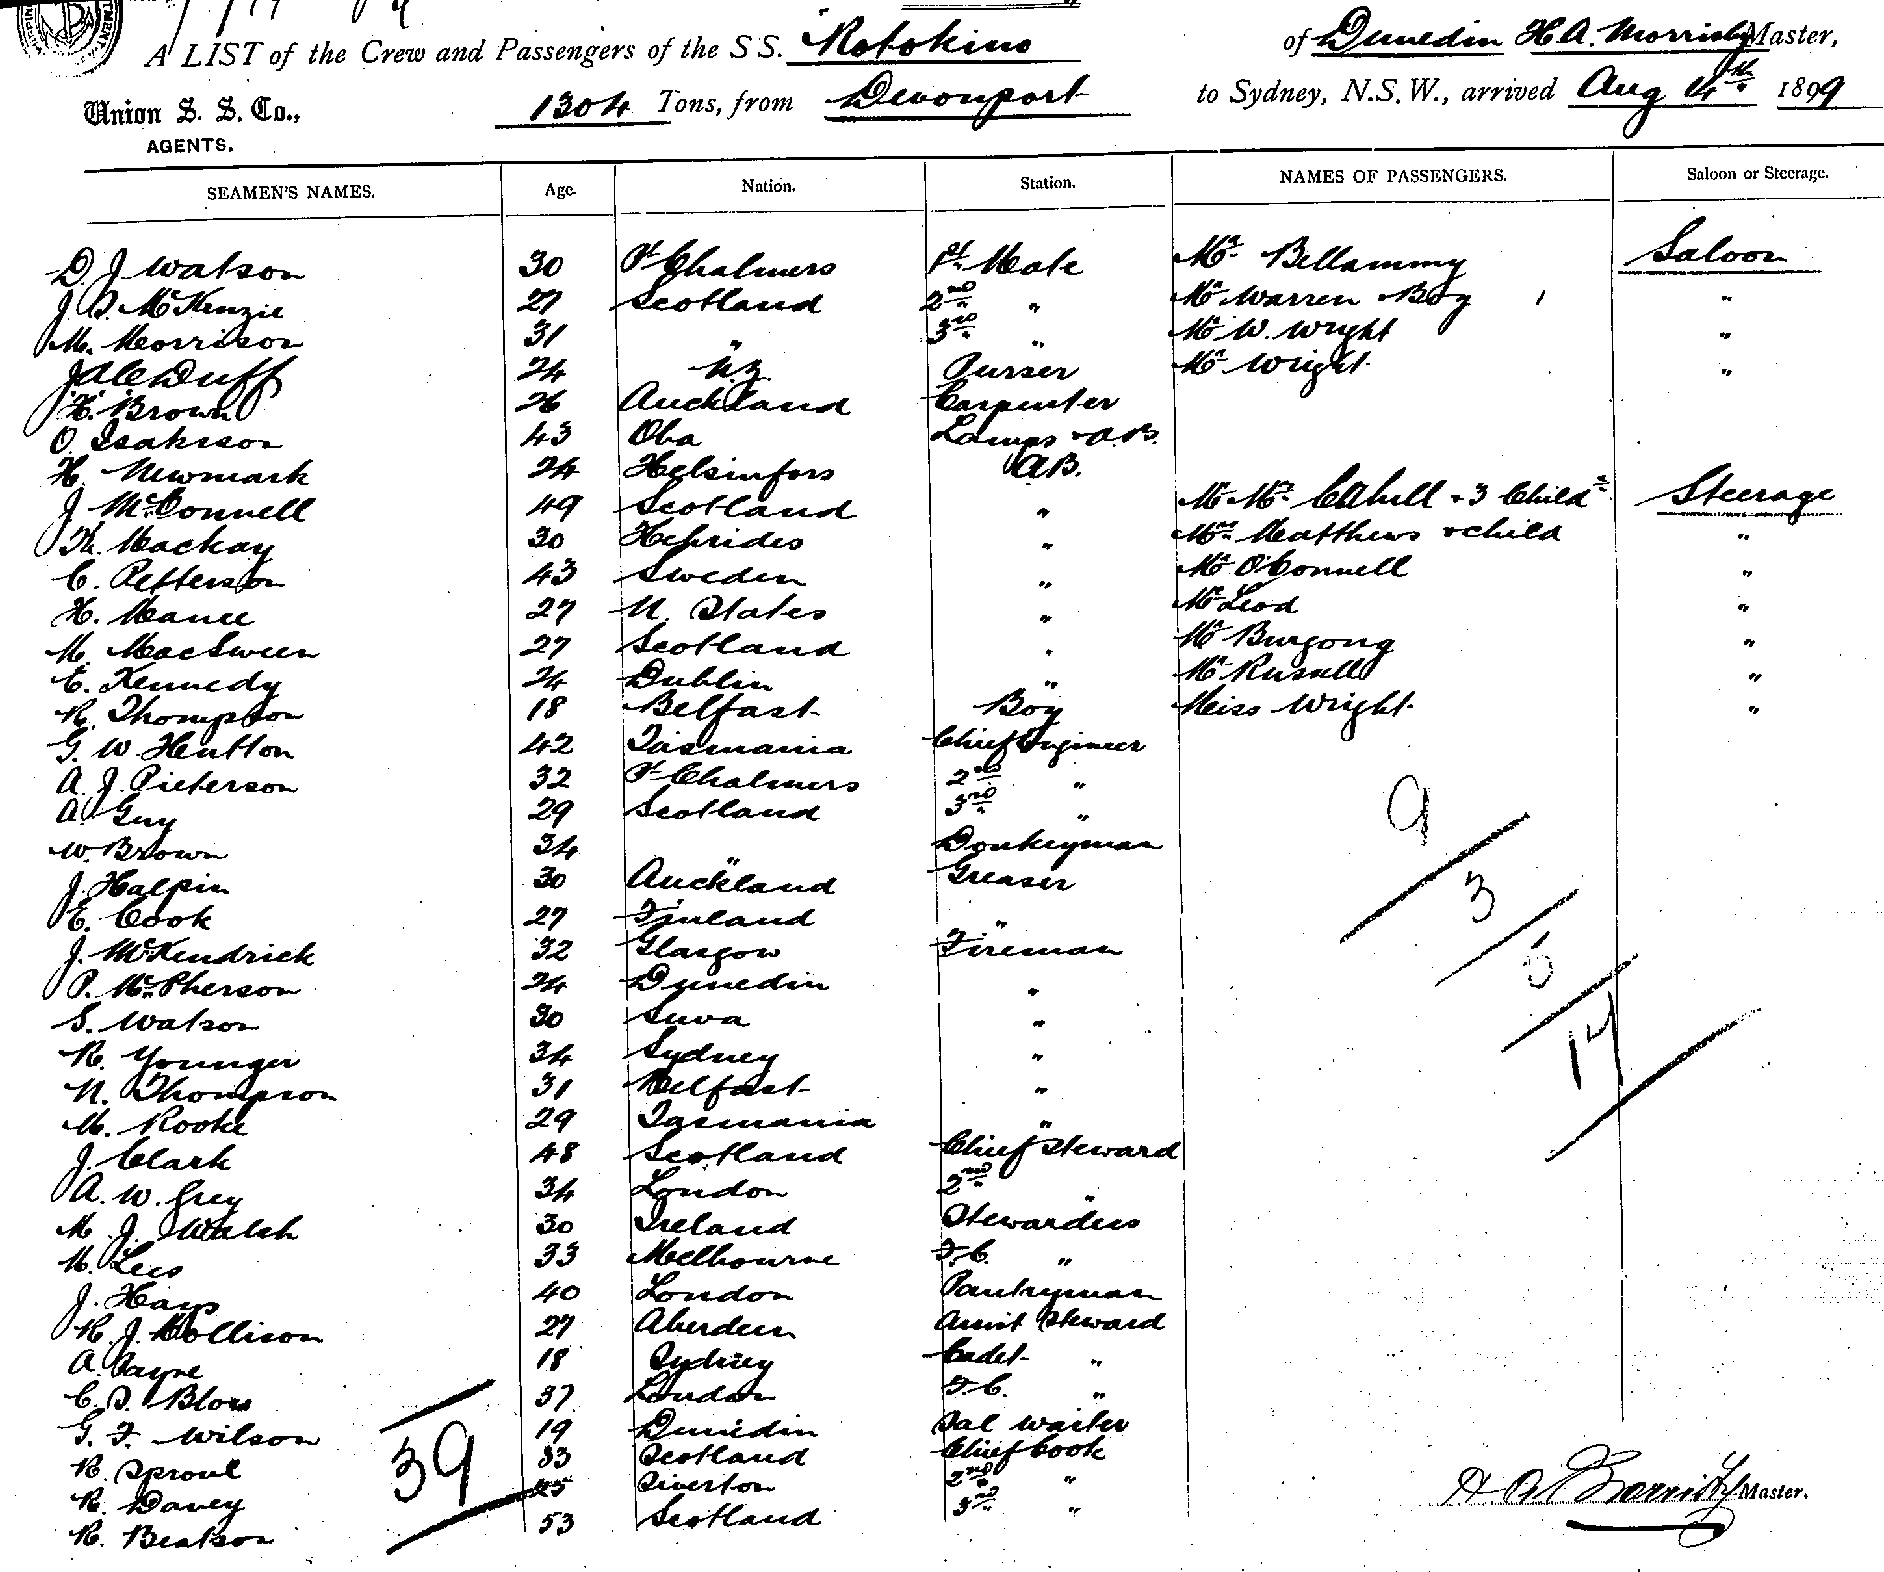 A LIST of the Crew and Passengers of the S.S. Rotokino of Dunedin H.A. Morrisby Master,
Union S. S. Co., AGENTS. 1304 Tons, from Devonport to Sydney, N.S.W., arrived Aug 14th 1899
SEAMEN'S NAMES. Age. Nation. Station. NAMES OF PASSENGERS. Saloon or Steerage.
D J Watson 30 Pt Chalmers 1st Mate Mrs Bellammy Saloon
J. S. McKenzie 27 Scotland 2nd " Mr Warren & Boy 1 "
M. Morrison 31 " 3rd " Mr W. Wright "
J A C Duff 24 N.Z. Purser Mr Wright "
H. Brown 26 Auckland Carpenter
O. Isakson 43 Oba Lamps & A.B.
H. Newmark 24 Helsinfors A.B.
J. McConnell 49 Scotland " Mr Mrs Cahill + 3 Childn Steerage
K. Mackay 30 Hebrides " Mrs Matthews & child "
C. Petterson 43 Sweden " Mr O'Connell "
H. Mance 27 U. States " McLeod "
M. MacSween 27 Scotland " Mr Burgong "
E. Kennedy 24 Dublin " Mr Russell "
R. Thompson 18 Belfast Boy Miss Wright "
G. W. Heatton 42 Tasmania Chief Engineer
A. J. Pieterson 32 Pt Chalmers 2nd "
A. Guy 29 Scotland 3rd "
W. Brown 34 " Donkeyman
J. Halpin 30 Auckland Greaser
E. Cook 27 Finland "
J. McKendrick 32 Glasgow Fireman
P. McPherson 24 Dunedin "
S. Watson 30 Suva "
R. Younger 34 Sydney "
N. Thompson 31 Belfast "
M. Rooke 29 Tasmania "
J. Clark 48 Scotland Chief Steward
A. W. Grey 34 London 2nd "
M. J. Walsh 30 Ireland Stewardess
M. Lees 33 Melbourne F.C. "
J. Hays 40 London Pantryman
R. J. Mollison 27 Aberdeen Assist Steward
A. Payne 18 Sydney Cadet "
C. S. Blows 37 London F.C. "
G. F. Wilson 19 Dunedin Sal Waiter
R. Sproul 33 Scotland Chief Cook
R. Davey 45 Riverton 2nd "
R. Beatson 53 Scotland 3rd "
9
3
5
17
39
H. A. Morrisby Master.